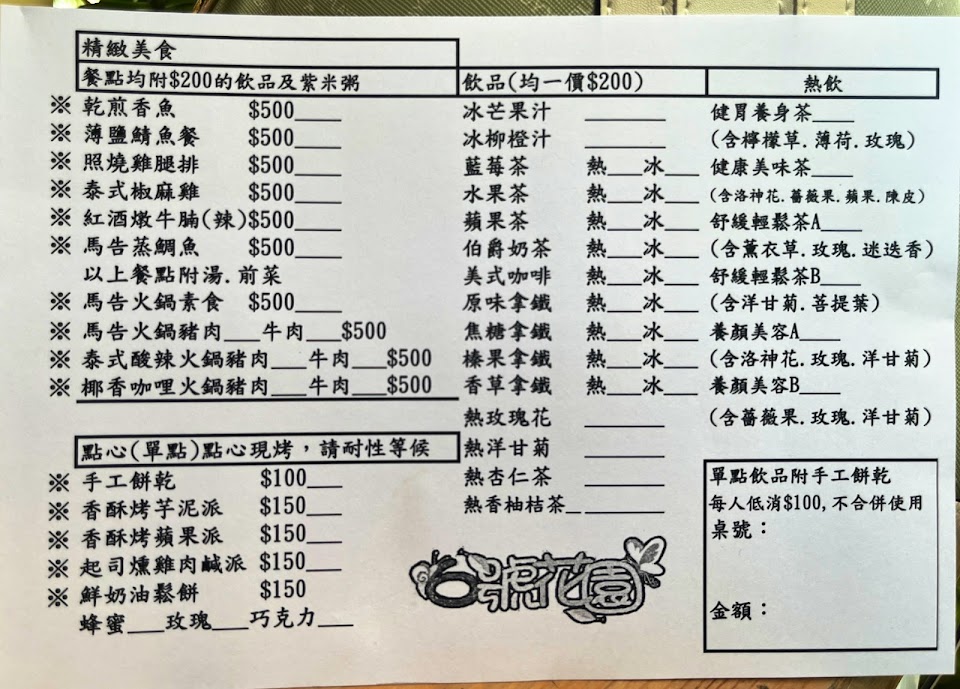 精緻美食
餐點均附$200的飲品及紫米粥
※ 乾煎香魚 $500____
※ 薄鹽鯖魚餐 $500____
※ 照燒雞腿排 $500____
※ 泰式椒麻雞 $500____
※ 紅酒燉牛腩(辣)$500____
※ 馬告蒸鯛魚 $500____
以上餐點附湯.前菜
※ 馬告火鍋素食 $500____
※ 馬告火鍋豬肉___牛肉___$500
※ 泰式酸辣火鍋豬肉___牛肉___$500
※ 椰香咖哩火鍋豬肉___牛肉___$500
點心(單點)點心現烤，請耐性等候
※ 手工餅乾 $100___
※ 香酥烤芋泥派 $150___
※ 香酥烤蘋果派 $150___
※ 起司燻雞肉鹹派 $150___
※ 鮮奶油鬆餅 $150
蜂蜜___玫瑰___巧克力___
飲品(均一價$200)
冰芒果汁 ______
冰柳橙汁 ______
藍莓茶 熱___冰___
水果茶 熱___冰___
蘋果茶 熱___冰___
伯爵奶茶 熱___冰___
美式咖啡 熱___冰___
原味拿鐵 熱___冰___
焦糖拿鐵 熱___冰___
榛果拿鐵 熱___冰___
香草拿鐵 熱___冰___
熱玫瑰花 ______
熱洋甘菊 ______
熱杏仁茶 ______
熱香柚桔茶_ ______
6號花園
熱飲
健胃養身茶___
(含檸檬草.薄荷.玫瑰)
健康美味茶___
(含洛神花.薔薇果.蘋果.陳皮)
舒緩輕鬆茶A___
(含薰衣草.玫瑰.迷迭香)
舒緩輕鬆茶B___
(含洋甘菊.菩提葉)
養顏美容A___
(含洛神花.玫瑰.洋甘菊)
養顏美容B___
(含薔薇果.玫瑰.洋甘菊)
單點飲品附手工餅乾
每人低消$100,不合併使用
桌號：
金額：